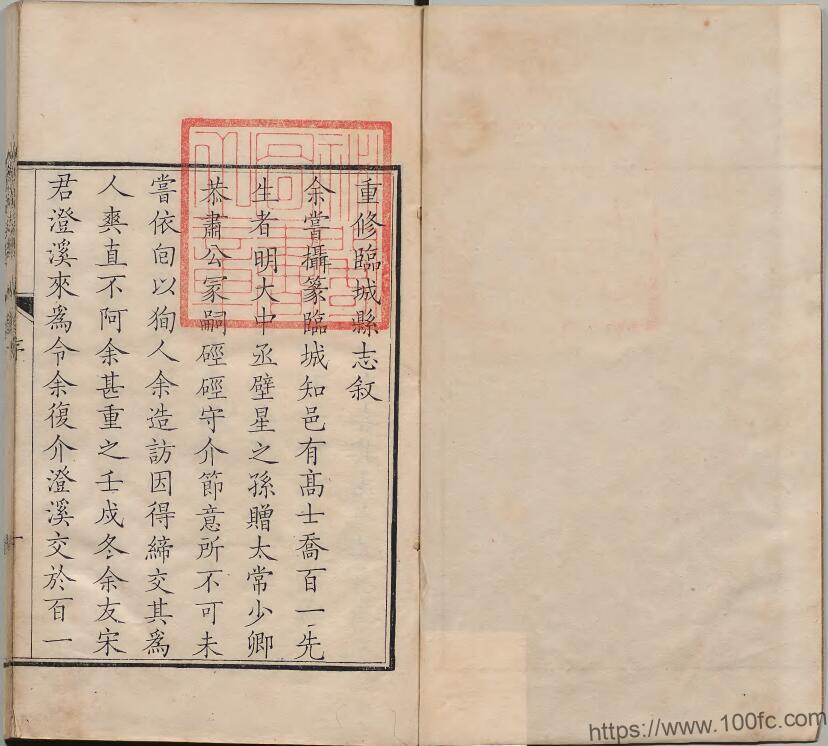 重修臨城縣志叙
余嘗攝篆臨城知邑有高士喬百一先
生者明大中丞壁星之孫贈太常少卿
恭肅公冢嗣硜硜守介節意所不可未
嘗依佪以狥人余造訪因得締交其為
人爽直不阿余甚重之壬戌冬余友宋
君澄溪來為令余復介澄溪交於百一
序
一
https://www.100fc.com